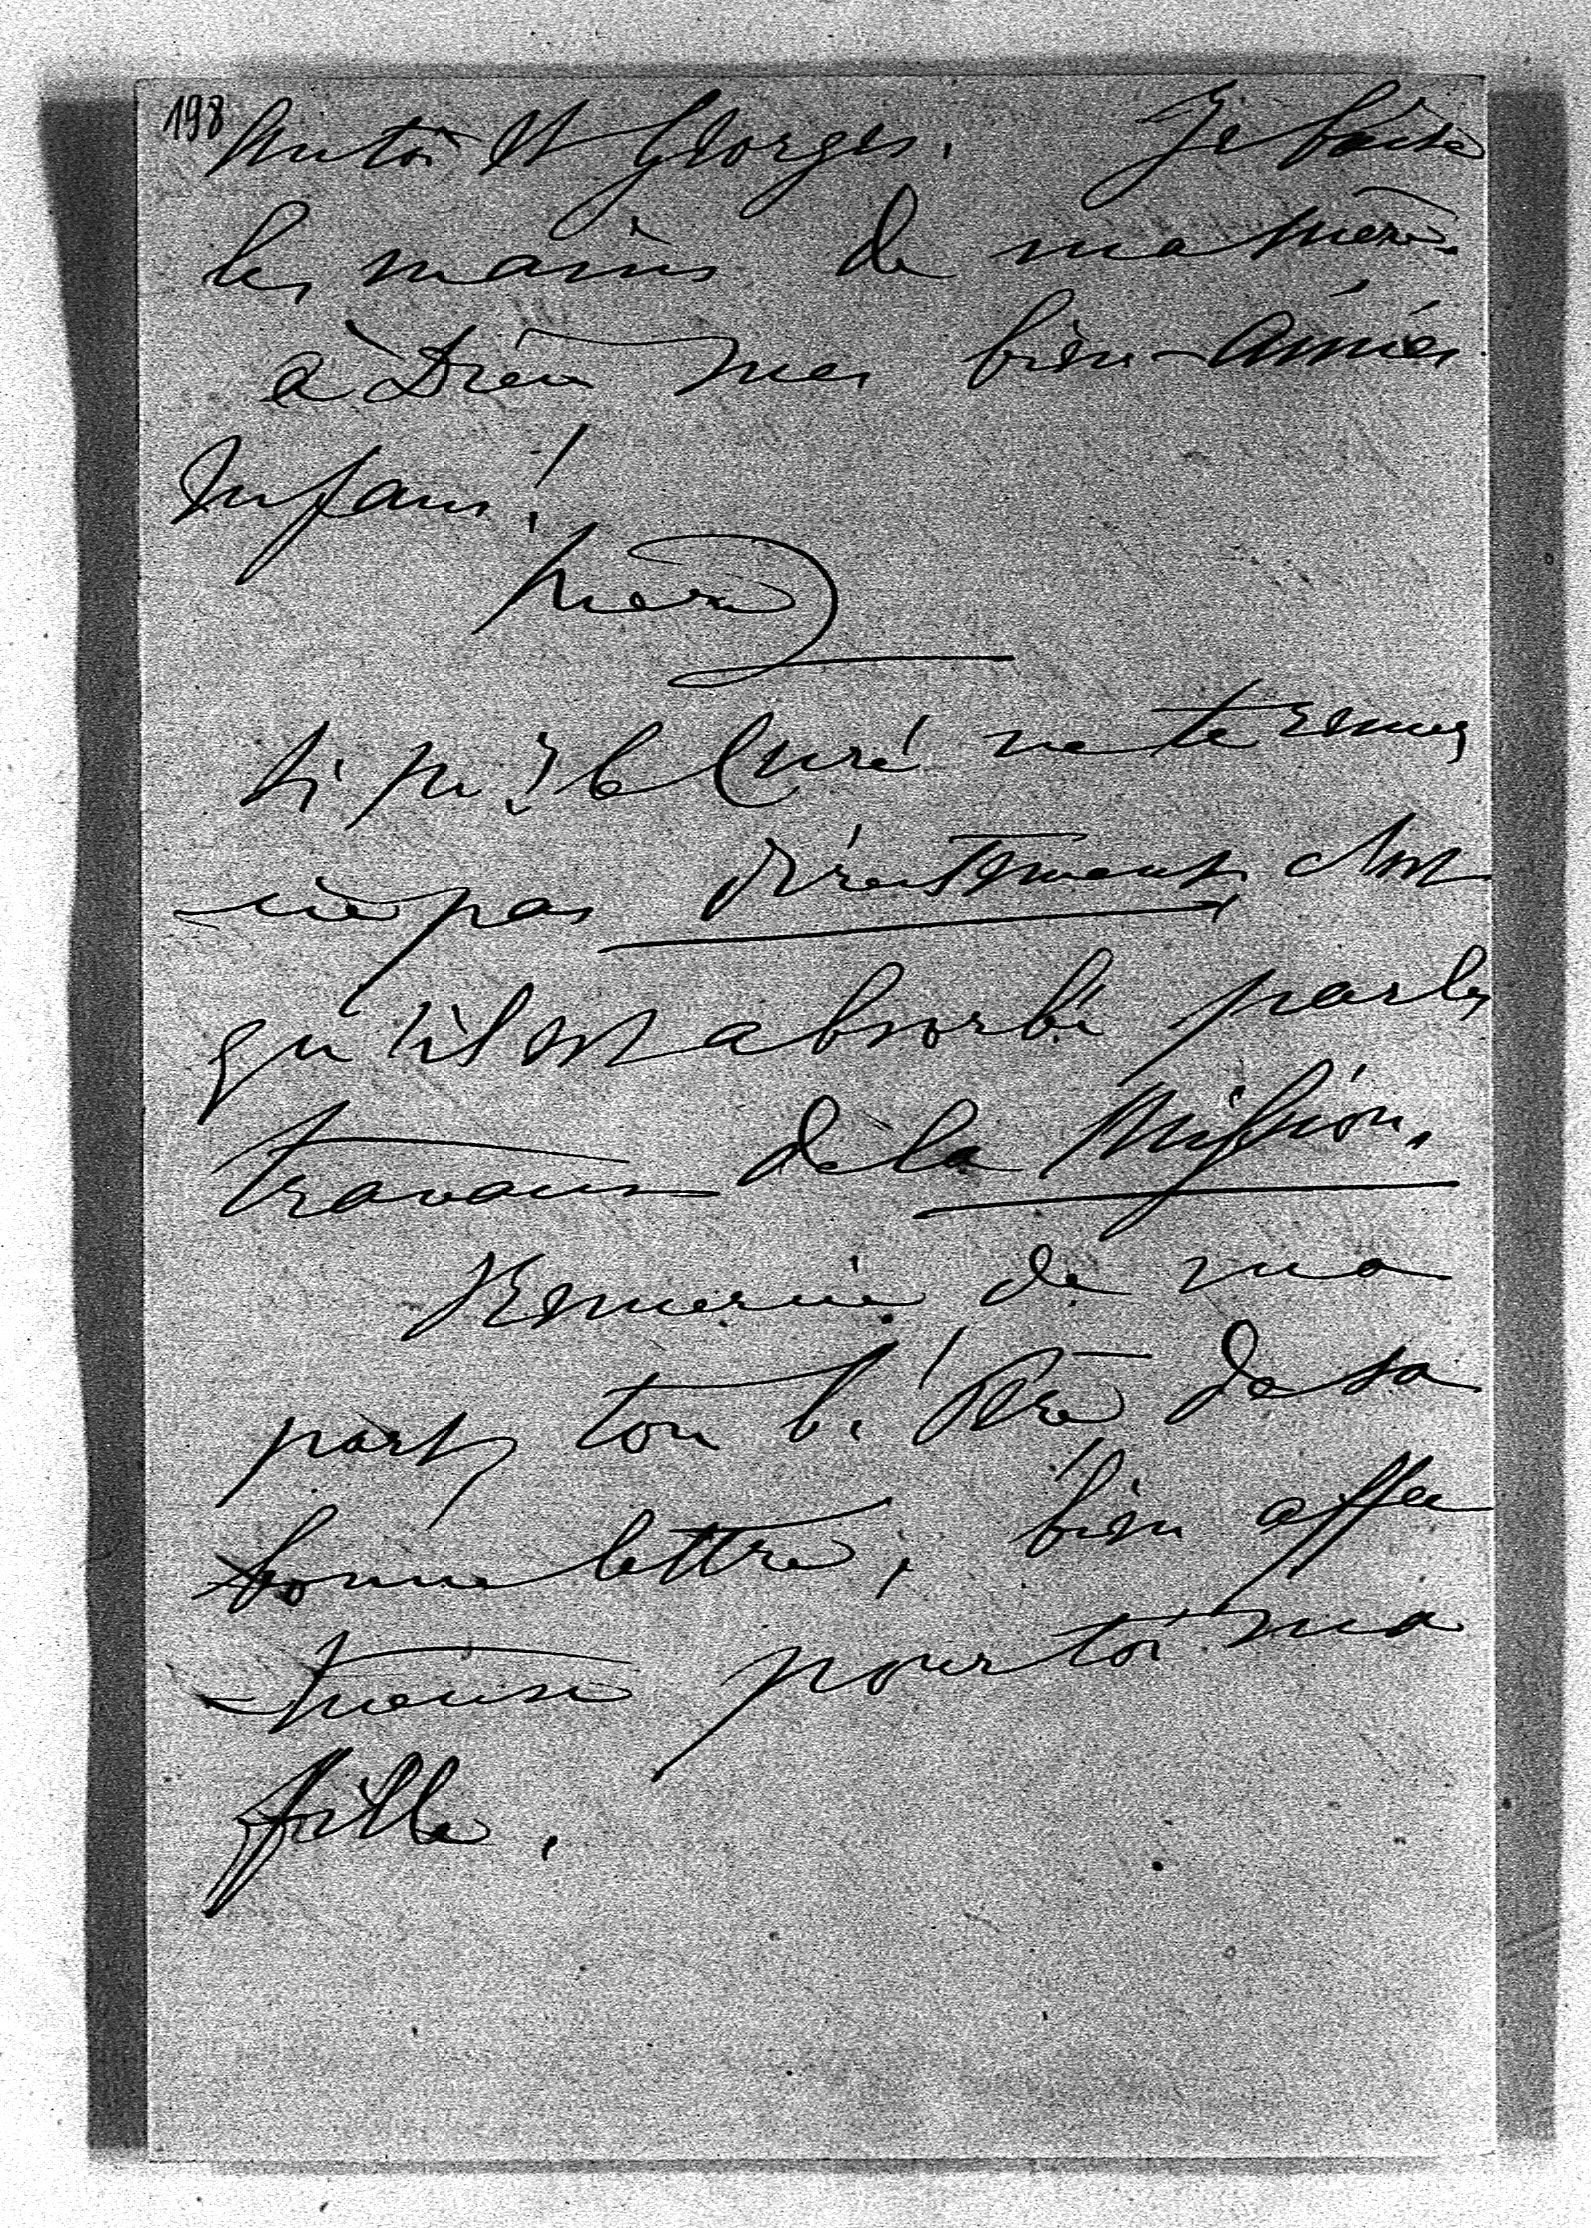 198
toi et Georges. Je baise
les mains de ma mère.
à Dieu mes bien-aimés
Enfans!
Si Mr le Curé ne te remer
cie pas directement c'est
qu'il est absorbé par les
travaux de la Mission.
Remercie de ma
part ton b. Père de sa
bonne lettre, bien affec
tueuse pour toi ma
fille.